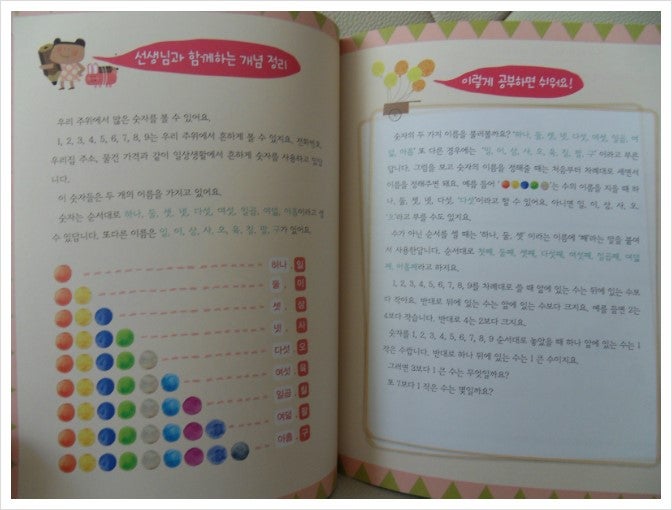 선생님과 함께하는 개념 정리
우리 주위에서 많은 숫자를 볼 수 있어요.
1, 2, 3, 4, 5, 6, 7, 8, 9는 우리 주위에서 흔하게 볼 수 있지요. 전화번호,
우리집 주소, 물건 가격과 같이 일상생활에서 흔하게 숫자를 사용하고 있답니
다.
이 숫자들은 두 개의 이름을 가지고 있어요.
숫자는 순서대로 하나, 둘, 셋, 넷, 다섯, 여섯, 일곱, 여덟, 아홉이라고 셀
수 있답니다. 또다른 이름은 일, 이, 삼, 사, 오, 육, 칠, 팔, 구가 있어요.
하나, 일
둘, 이
셋, 삼
넷, 사
다섯, 오
여섯, 육
일곱, 칠
여덟, 팔
아홉, 구
이렇게 공부하면 쉬워요!
숫자의 두 가지 이름을 불러볼까요? '하나, 둘, 셋, 넷, 다섯, 여섯, 일곱, 여
덟, 아홉' 또 다른 경우에는 '일, 이, 삼, 사, 오, 육, 칠, 팔, 구' 이라고 부른
답니다. 그림을 보고 숫자의 이름을 정해줄 때는 처음부터 차례대로 세면서
이름을 정해주면 돼요. 예를 들어 '는 수의 이름을 지을 때 하
나, 둘, 셋, 넷, 다섯, '다섯'이라고 할 수 있어요. 아니면 일, 이, 삼, 사, 오,
'오'라고 부를 수도 있지요.
수가 아닌 순서를 셀 때는 '하나, 둘, 셋' 이라는 이름에 '째'라는 말을 붙여
서 사용한답니다. 순서대로 첫째, 둘째, 셋째, 다섯째, 여섯째, 일곱째, 여덟
째, 아홉째라고 하지요.
1, 2, 3, 4, 5, 6, 7, 8, 9를 차례대로 쓸 때 앞에 있는 수는 뒤에 있는 수보
다 작아요. 반대로 뒤에 있는 수는 앞에 있는 수보다 크지요. 예를 들면 2는
4보다 작습니다. 반대로 4는 2보다 크지요.
숫자를 1, 2, 3, 4, 5, 6, 7, 8, 9 순서대로 놓았을 때 하나 앞에 있는 수는 1
작은 수랍니다. 반대로 하나 뒤에 있는 수는 1 큰 수이지요.
그러면 3보다 1 큰 수는 무엇일까요?
또 7보다 1 작은 수는 몇일까요?